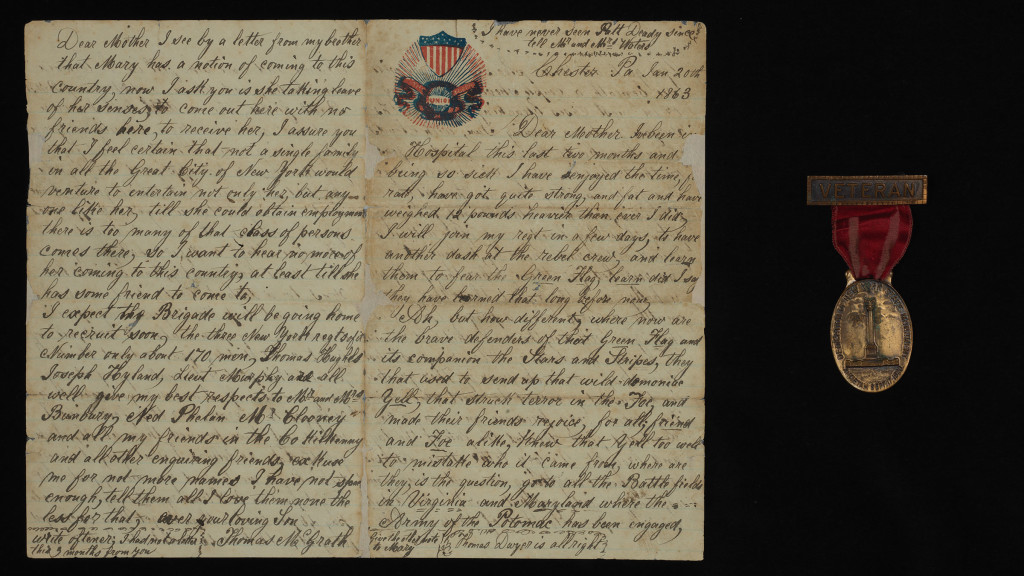 I have never seen Patt Deady since
tell Mr and Mrs Waters
Chester Pa Jan 20th
1863
Dear Mother I been in
Hospital this last two months and
being so sick I have enjoyed the time,
have got quite strong and fat and have
weighed 12 pounds heavier than ever I did
I will join my regt in a few days, to have
another dash at the rebel crew, and learn
them to fear the Green Flag, learn did I say
they have learned that long before now,
Ah, but how different, where now are
the brave defenders of that Green Flag and
its companion the Stars and Stripes, they
that used to send up that wild demoniac
Yell, that struck terror in the Foe, and
made their friends rejoice, for all, friend
and Foe alike, knew that Yell too well
to mistake who it came from, where are
they, is the question, go to all the Battle fields
in Virginia and Maryland where the
Army of the Potomac has been engaged,
Give the
to Mary
Thomas Dwyer is all right
Dear Mother I see by a letter from my brother
that Mary has a notion of coming to this
country, now I ask you is she taking leave
of her senses, to come out here with no
friends here, to receive her, I assure you
that I feel certain that not a single family
in all the Great City of New York would
venture to entertain not only her, but any-
one like her, till she could obtain employment
there is too many of that class of persons
comes there, so I want to hear no more of
her coming to this country, at least till she
has some friend to come to,
I expect the Brigade will be going home
to recruit soon, the three New York regts
Number only about 170 men, Thomas Hughes
Joseph Hyland, Lieut Murphy and all
well give my best respects to Mr and Mrs
Bunbury, Ned Phelan Mr Clooney
and all my friends in the Co Kilkenny
and all other enquiring friends, excuse
me for not more names I have not space
enough, tell them all I love them none the
less for that, ever your loving Son
write oftener, I had not a letter Thomas McGrath
this 3 months from you
UNION
VETERAN